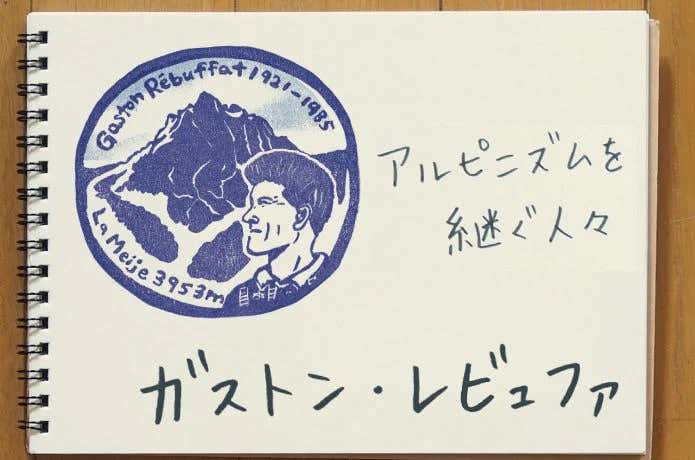 Gaston Rébuffat 1921-1985
La Meije 3953m
アルピニズムを
継ぐ人々
ガストン・レビュファ